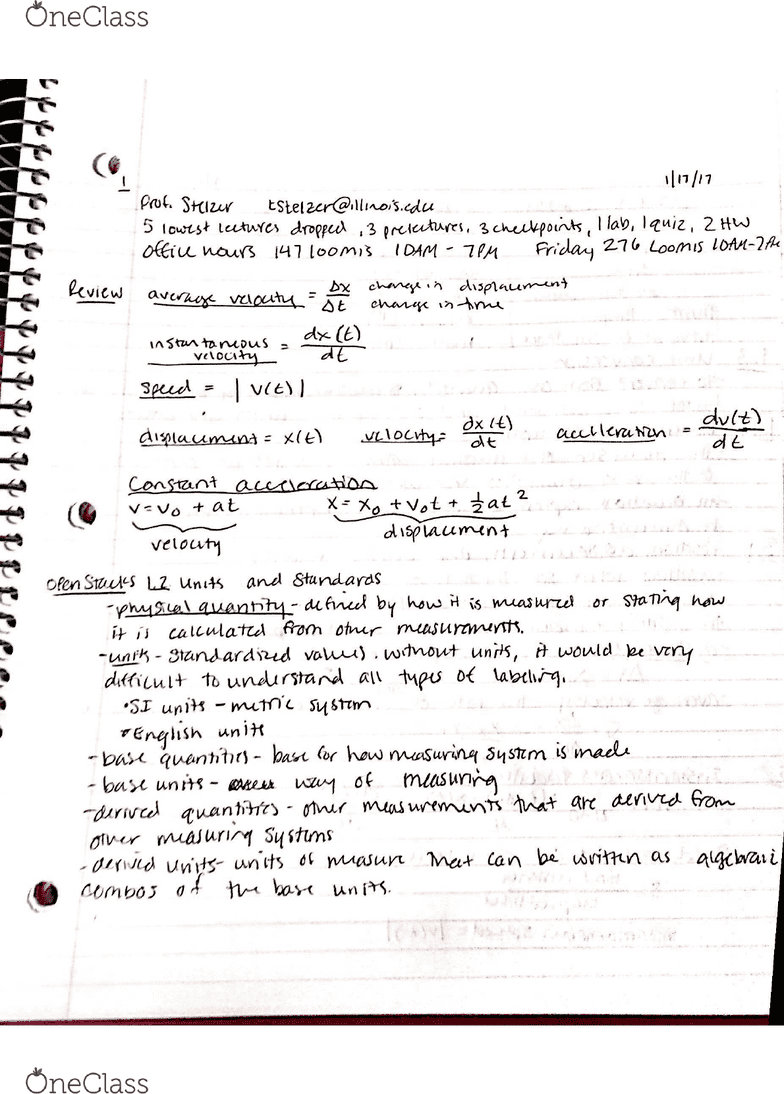 OneClass
1/17/17
1
Prof. Stelzer tstelzer@illinois.edu
5 lowest lectures dropped, 3 prelectures, 3 checkpoints, 1 lab, 1 quiz, 2 HW
office hours 147 loomis 10AM - 7PM Friday 276 Loomis 10AM-7PM
Review average velocity = Δx/Δt change in displacement / change in time
instantaneous velocity = dx(t)/dt
Speed = |v(t)|
displacement = x(t) velocity = dx(t)/dt acceleration = dv(t)/dt
Constant acceleration
v = v₀ + at x = x₀ + v₀t + ½at²
velocity displacement
Open Stacks 1.2 Units and Standards
-physical quantity - defined by how it is measured or stating how
it is calculated from other measurements.
-units - Standardized values. without units, it would be very
difficult to understand all types of labeling.
•SI units - metric system
•English units
-base quantities - base for how measuring system is made
-base units - way of measuring
-derived quantities - other measurements that are derived from
other measuring systems
-derived units - units of measure that can be written as algebrai
combos of the base units.
OneClass